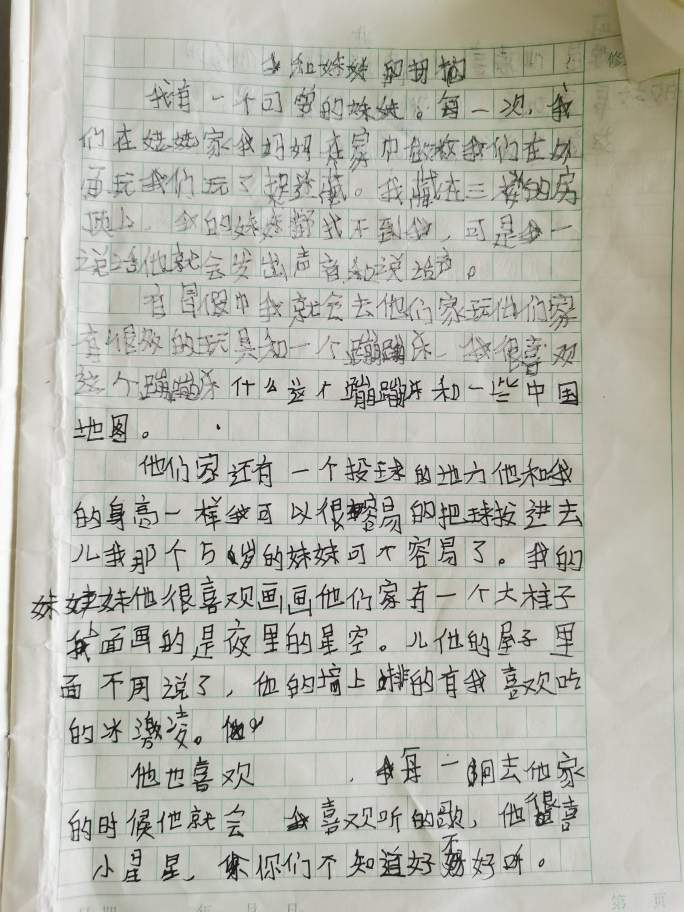 我和妹妹的
我有一个可爱的妹妹。每一次,我
们在姑姑家我妈妈在家中 我们在外
面玩我们玩了捉迷藏。我藏在三楼的房
顶上,我的妹妹 我不到我,可是我一
说话他就会发出声音和说话声。
有暑假中我就会去他们家玩他们家
有很多的玩具和一个蹦蹦乐,我很喜欢
这个蹦蹦乐什么这个蹦蹦乐和一些中国
地图。
他们家还有一个投球的地方他和我
的身高一样我可以很容易的把球投进去
儿我那个5岁的妹妹可不容易了。我的
妹妹妹他很喜欢画画他们家有一个大柱子
我面画的是夜里的星空。儿他的屋子里
面不用说了,他的墙上 的有我喜欢吃
的冰激凌。他
他也喜欢 ,我每一 去他家
的时候他就会 我喜欢听的歌,他很喜
小星星, 你们不知道好不好听。
第 页